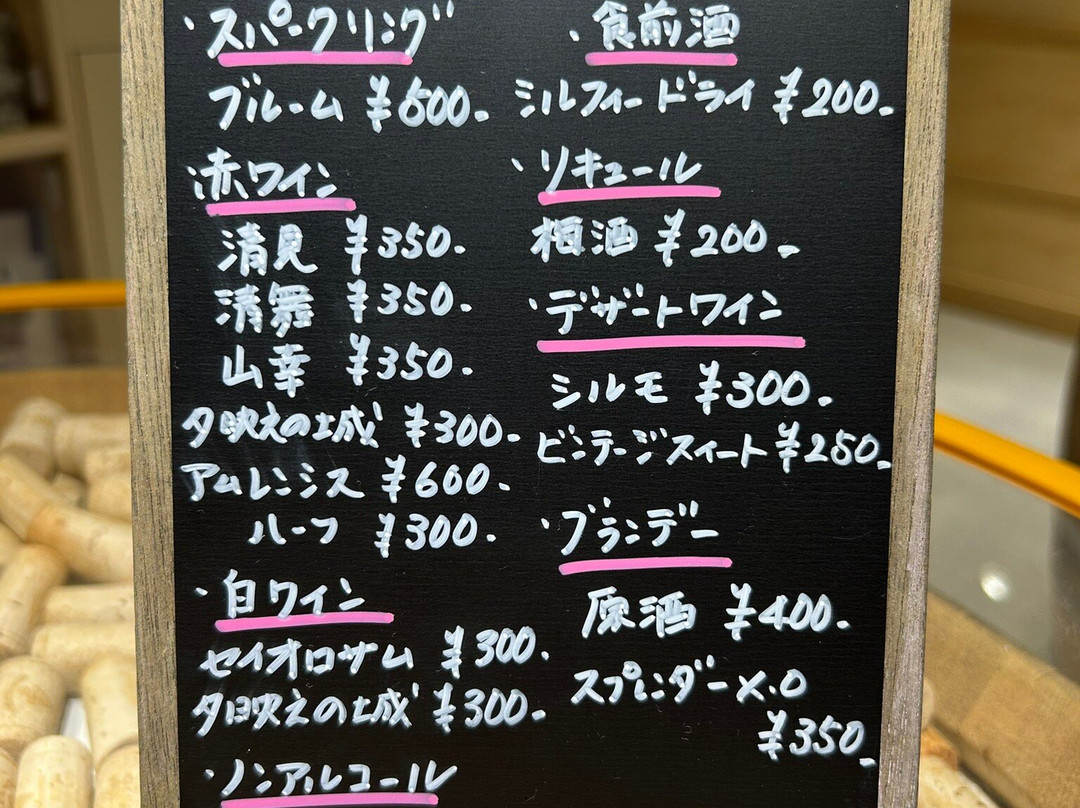 ・スパークリング
ブルーム ¥500.
・赤ワイン
清見 ¥350.
清舞 ¥350.
山幸 ¥350.
夕映えの城 ¥300.
アムレンシス ¥600.
ハーフ ¥300.
・白ワイン
セイオロサム ¥300.
夕映えの城 ¥300.
・ノンアルコール
・食前酒
ミルフィードライ ¥200.
・リキュール
梅酒 ¥200.
・デザートワイン
シルモ ¥300.
ビンテージスイート ¥250.
・ブランデー
原酒 ¥400.
スプレンダーX.O
¥350.